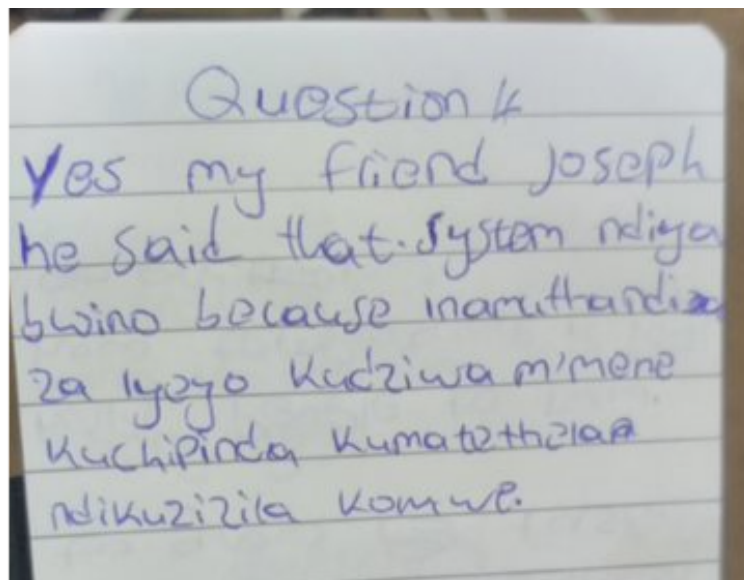 Question 4
Yes my friend Joseph
he said that. System ndiya
bwino because inamuthandi
za iyeyo kudziwa m'mene
kuchipinda kumatethelaa
ndikuzizila komwe.